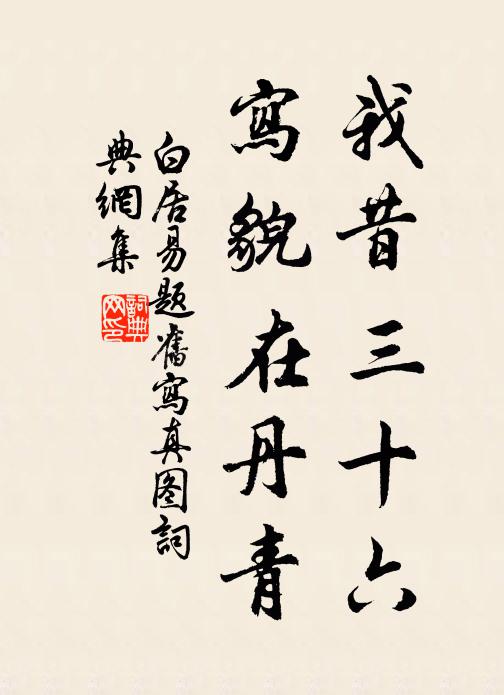 我昔三十六
寫貌在丹青
白居易題舊寫真图詞
典網集
詞典
网印